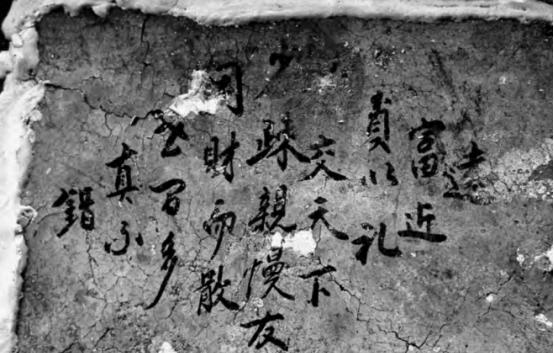 遠
富近
以礼
交天下
少疎親慢友
財而散
百多
真不
錯